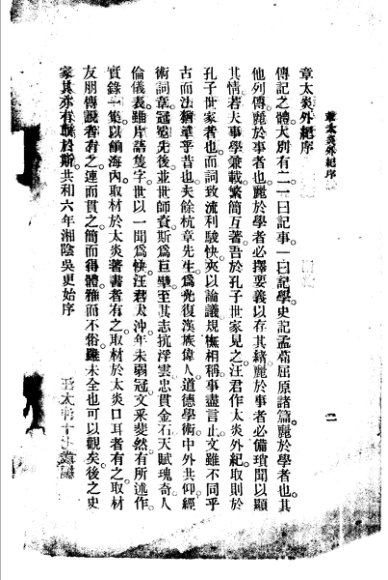 章太炎外紀序
章太炎外紀序
傳記之體大別有二一曰記事一曰記學史記孟荀屈原諸篇麗於學者也其
他列傳麗於事者也麗於學者必擇要義以存其緒麗於事者必備瑣聞以顯
其情若夫事學兼載繁簡互著吾於孔子世家見之汪君作太炎外紀取則於
孔子世家者也而詞致流利駿快夾以論議規橅相稱事盡言止文雖不同乎
古而法猶準乎昔也夫餘杭章先生為光復漢族偉人道德學術中外共仰經
術詞章冠絕先後並世師資斯為巨擘至其志抗浮雲忠貫金石天賦瑰奇人
倫儀表雖片語隻字世以一聞為快汪君太沖年未弱冠文采斐然有所述作
實錄一集以餉海內取材於太炎著書者有之取材於太炎口耳者有之取材
友朋傳說者有之連而貫之簡而得體雅而不俗雖未全也可以觀矣後之史
家其亦有取於斯共和六年湘陰吳更始序